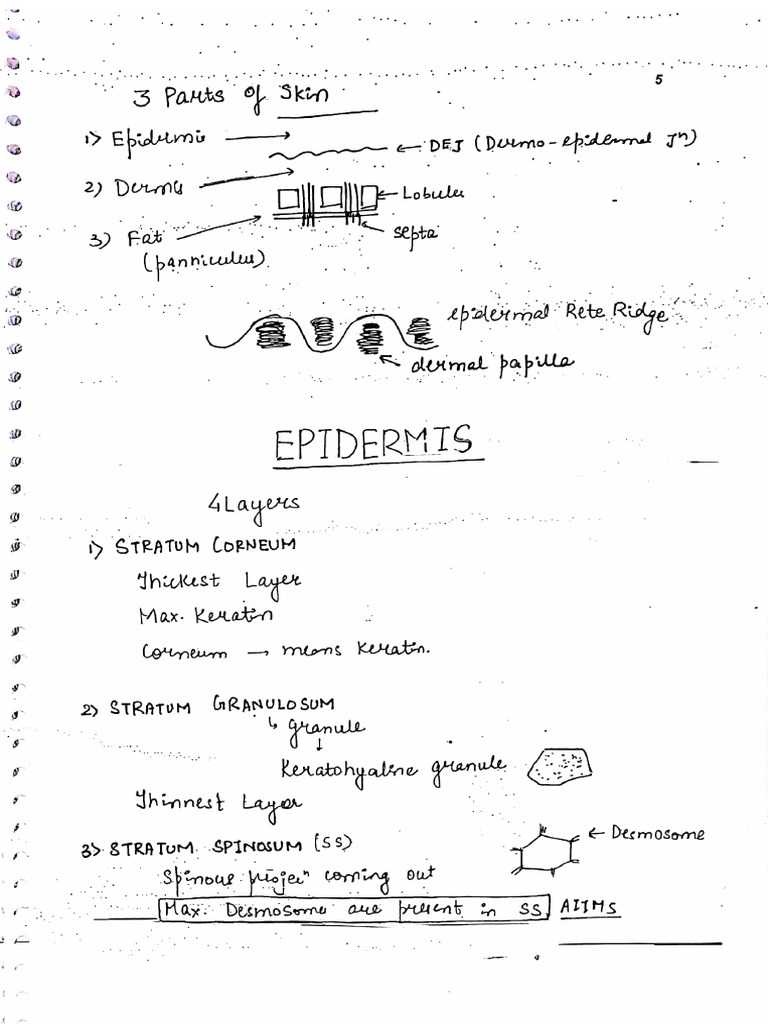 5
3 Parts of Skin
1) Epidermis
← DEJ (Dermo-epidermal Jⁿ)
2) Dermis
← Lobules
3) Fat
← septa
(panniculus)
epidermal Rete Ridge
← dermal papilla
EPIDERMIS
4 Layers
1) STRATUM CORNEUM
Thickest Layer
Max. Keratin
Corneum → means Keratin.
2) STRATUM GRANULOSUM
↳ granule
↓
Keratohyaline granule
Thinnest Layer
3) STRATUM SPINOSUM (SS)
← Desmosome
Spinous projecⁿ coming out
Max. Desmosome are present in SS. AIIMS